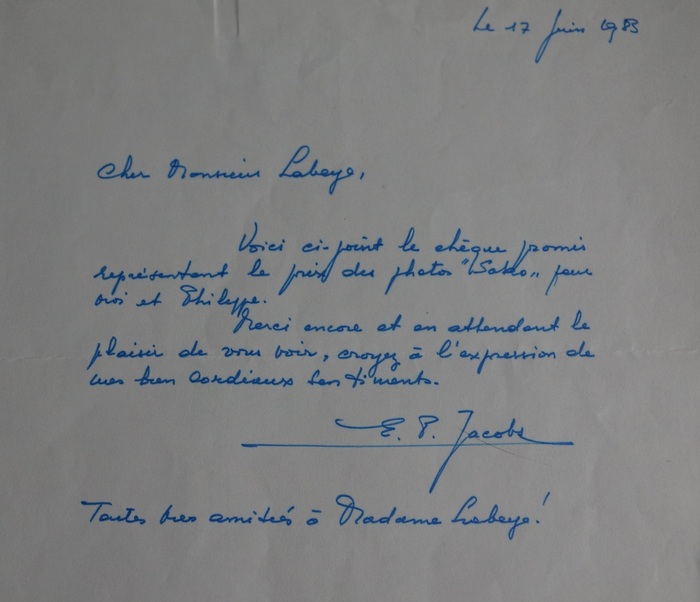 Le 17 Juin 1983
Cher Monsieur Labeye,
Voici ci-joint le chèque promis
représentant le prix des photos "Sato" pour
moi et Philippe.
Merci encore et en attendant le
plaisir de vous voir, croyez à l'expression de
mes bien cordiaux sentiments.
E. P. Jacobs
Toutes mes amitiés à Madame Labeye!